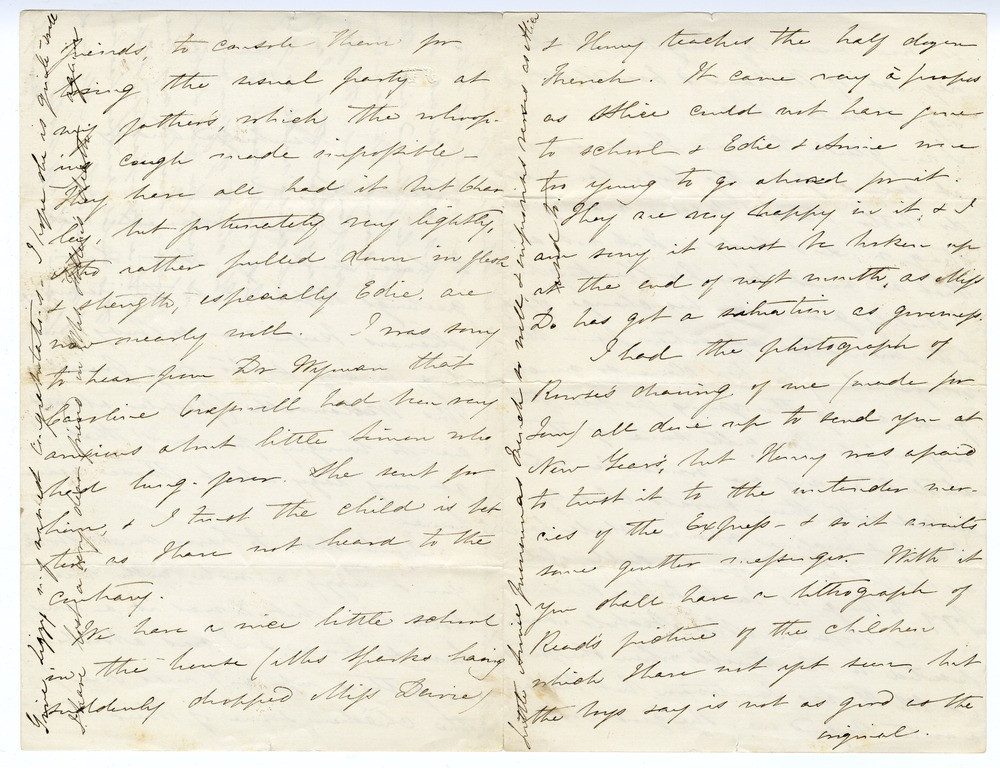 friends, to console them for
losing the usual party at
my father's, which the whoop-
ing cough made impossible –
They have all had it but Char-
ley, but fortunately very lightly,
tho rather pulled down in flesh
& strength, especially Edie, are
now nearly well. I was sorry
to hear from Dr Wyman that
Caroline had been very
anxious about little Simon who
had lung-fever. She sent for
him, & I trust the child is bet
ter as I have not heard to the
contrary.
We have a nice little school
in the house (Mrs Sparks having
suddenly dropped Miss Davie)
& Henry teaches the half dozen
French. It came very à propos
as Alice could not have gone
to school & Edie & Annie were
too young to go abroad for it.
They are very happy in it, & I
am sorry it must be broken up
at the end of next month, as Miss
D. has got a situation as governess.
I had the photograph of
Rowse's drawing of me (made for
) all done up to send you at
New Year's, but Henry was afraid
to trust it to the untender mer-
cies of the Express – & so it awaits
some gentler messenger. With it
you shall have a lithograph of
Read's picture of the children
which I have not yet seen, but
the boys say is not as good as the
original.
Give Lizzy my warmest congratulations. I hope she is quite well
again
I have a very dear friend in
Little Annie